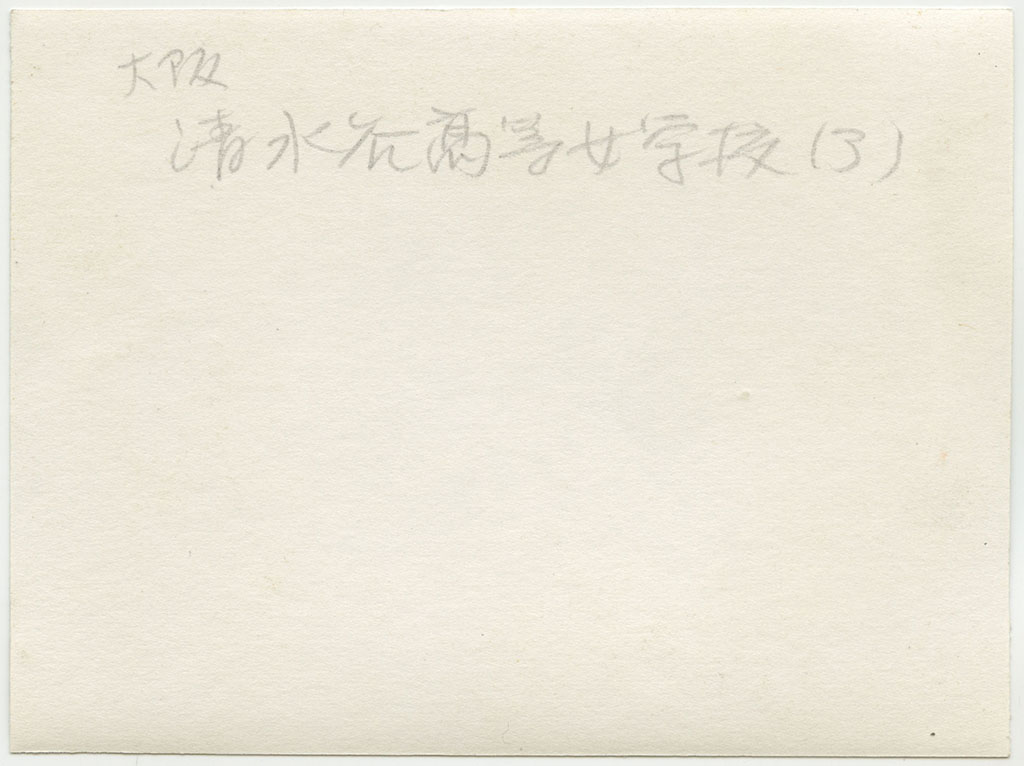 大阪
清水谷高等女学校(3)